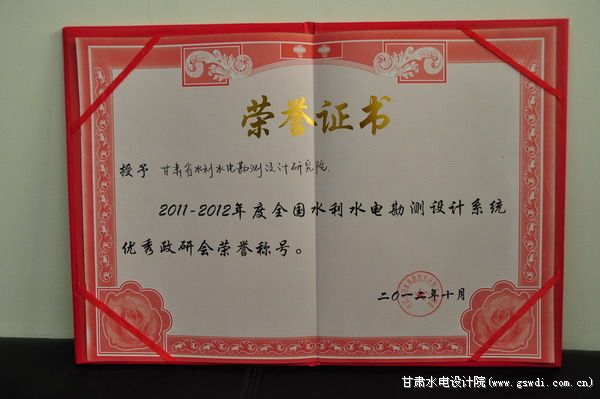 荣誉证书
授予 甘肃省水利水电勘测设计研究院
2011-2012年度全国水利水电勘测设计系统
优秀政研会荣誉称号。
二〇一二年十月
甘肃水电设计院(www.gswdi.com.cn)